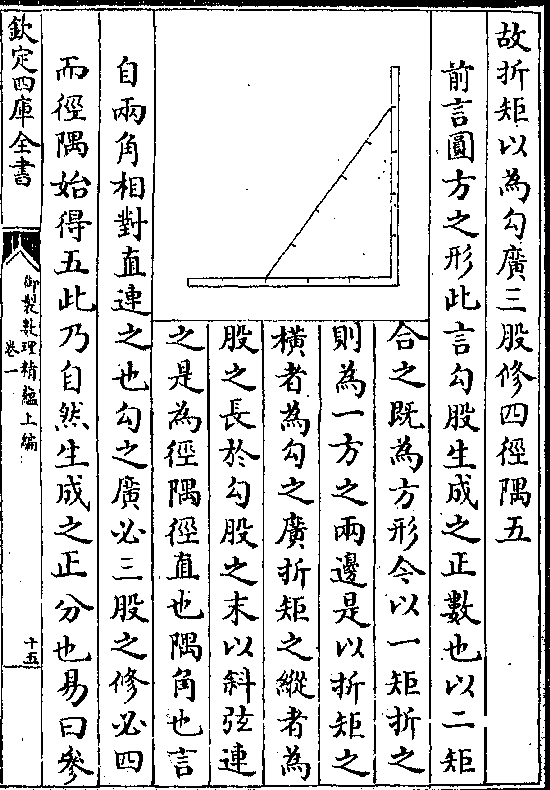 故折矩以為勾廣三股修四徑隅五
前言圓方之形此言勾股生成之正數也以二矩
合之既為方形今以一矩折之
則為一方之兩邊是以折矩之
橫者為勾之廣折矩之縱者為
股之長於勾股之末以斜弦連
之是為徑隅徑直也隅角也言
自兩角相對直連之也勾之廣必三股之修必四
而徑隅始得五此乃自然生成之正分也易曰參
欽定四庫全書
御製數理精蘊上編
卷一
十五